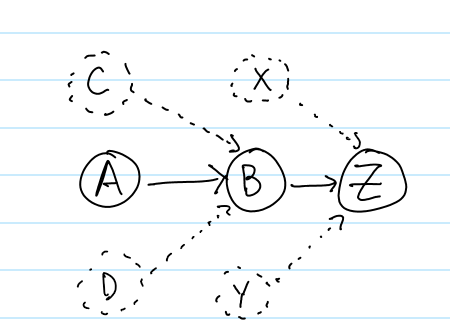 C X
A B Z
D Y